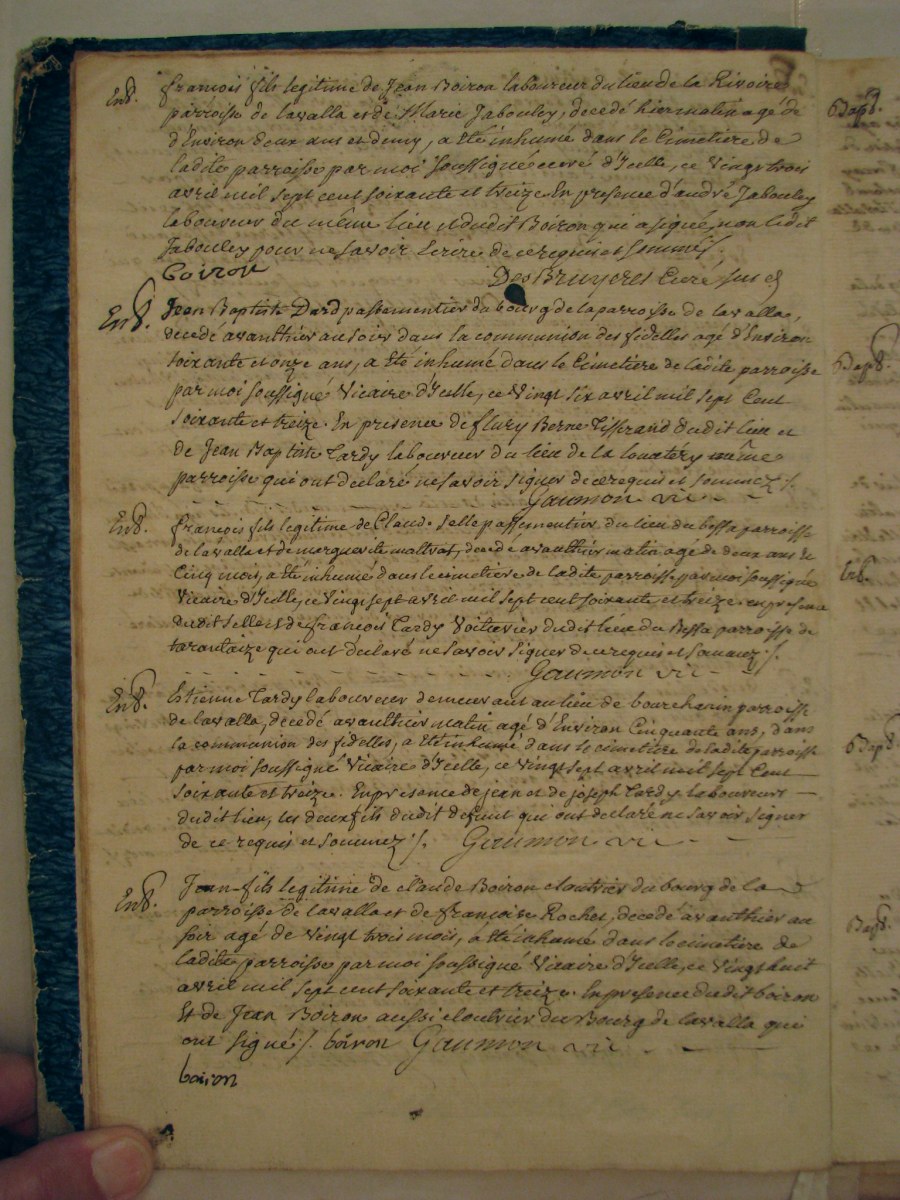 Ent. françois fils legitime de Jean Boiron laboureur du lieu de la Rivoire
parroisse de lavalla et de Marie Jabouley, decedé hier matin agé de
d'Environ deux ans et demy, a eté inhumé dans le Cimetiere de
ladite parroisse par moi soussigné curé d'Icelle, ce vingt trois
avril mil sept cent soixante et treize En presence d'andré Jabouley
laboureur du même lieu et dudit Boiron qui a signé, non ledit
Jabouley pour ne savoir Ecrire de ce requis et sommés
Boiron Des Bruyeres Curé
Ent. Jean Baptiste Dard passementier du bourg de la parroisse de lavalla,
decedé avanthier au soir dans la communion des fidelles agé d'Environ
soixante et onze ans, a eté inhumé dans le Cimetiere de ladite parroisse
par moi soussigné Vicaire d'Icelle, ce vingt six avril mil sept Cent
soixante et treize. En presence de flury Berne Tisserand dudit lieu et
de Jean Baptiste Tardy laboureur du lieu de la même
parroisse qui ont declaré ne savoir signer de ce requis et sommez ./.
Gaumon vic
Ent. françois fils legitime de Claude Selle passementier du lieu du bessa parroisse
de lavalla et de marguerite matrat, decedé avanthier matin agé de deux ans et
Cinq mois, a eté inhumé dans le cimetiere de ladite parroisse par moi soussigné
Vicaire d'Icelle, ce vingt sept avril mil sept cent soixante et treize. en presence
dudit Selle et de françois Tardy Voiturier dudit lieu du Bessa parroisse de
tarantaize qui ont déclaré ne savoir signer de ce requis et sommez ./.
Gaumon vic
Ent. Etienne Tardy laboureur demeurant au lieu de bourchanin parroisse
de lavalla, decedé avanthier matin agé d'Environ Cinquante ans, dans
la communion des fidelles, a eté inhumé dans le cimetiere de ladite parroisse
par moi soussigné Vicaire d'Icelle, ce vingt sept avril mil sept Cent
soixante et treize. En presence de jean et de joseph Tardy laboureurs
dudit lieu, les deux fils dudit defunt qui ont declaré ne savoir signer
de ce requis et sommez ./. Gaumon vic
Ent. Jean fils legitime de claude Boiron cloutrier du bourg de la
parroisse de lavalla et de françoise Rochet, decedé avanthier au
soir agé de vingt trois mois, a eté inhumé dans le cimetiere de
ladite parroisse par moi soussigné Vicaire d'Icelle, ce vingt huit
avril mil sept cent soixante et treize. En presence dudit boiron
Et de Jean Boiron aussi cloutrier du Bourg de lavalla qui
ont signé ./. boiron Gaumon vic
boiron
Bapt.
Bapt.
Ent.
Bapt.
Bapt.